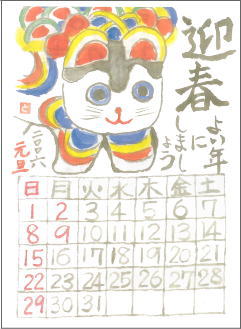 迎春
よい年
に
しまし
ょう
二〇〇六
元旦
日 月 火 水 木 金 土
1 2 3 4 5 6 7
8 9 10 11 12 13 14
15 16 17 18 19 20 21
22 23 24 25 26 27 28
29 30 31